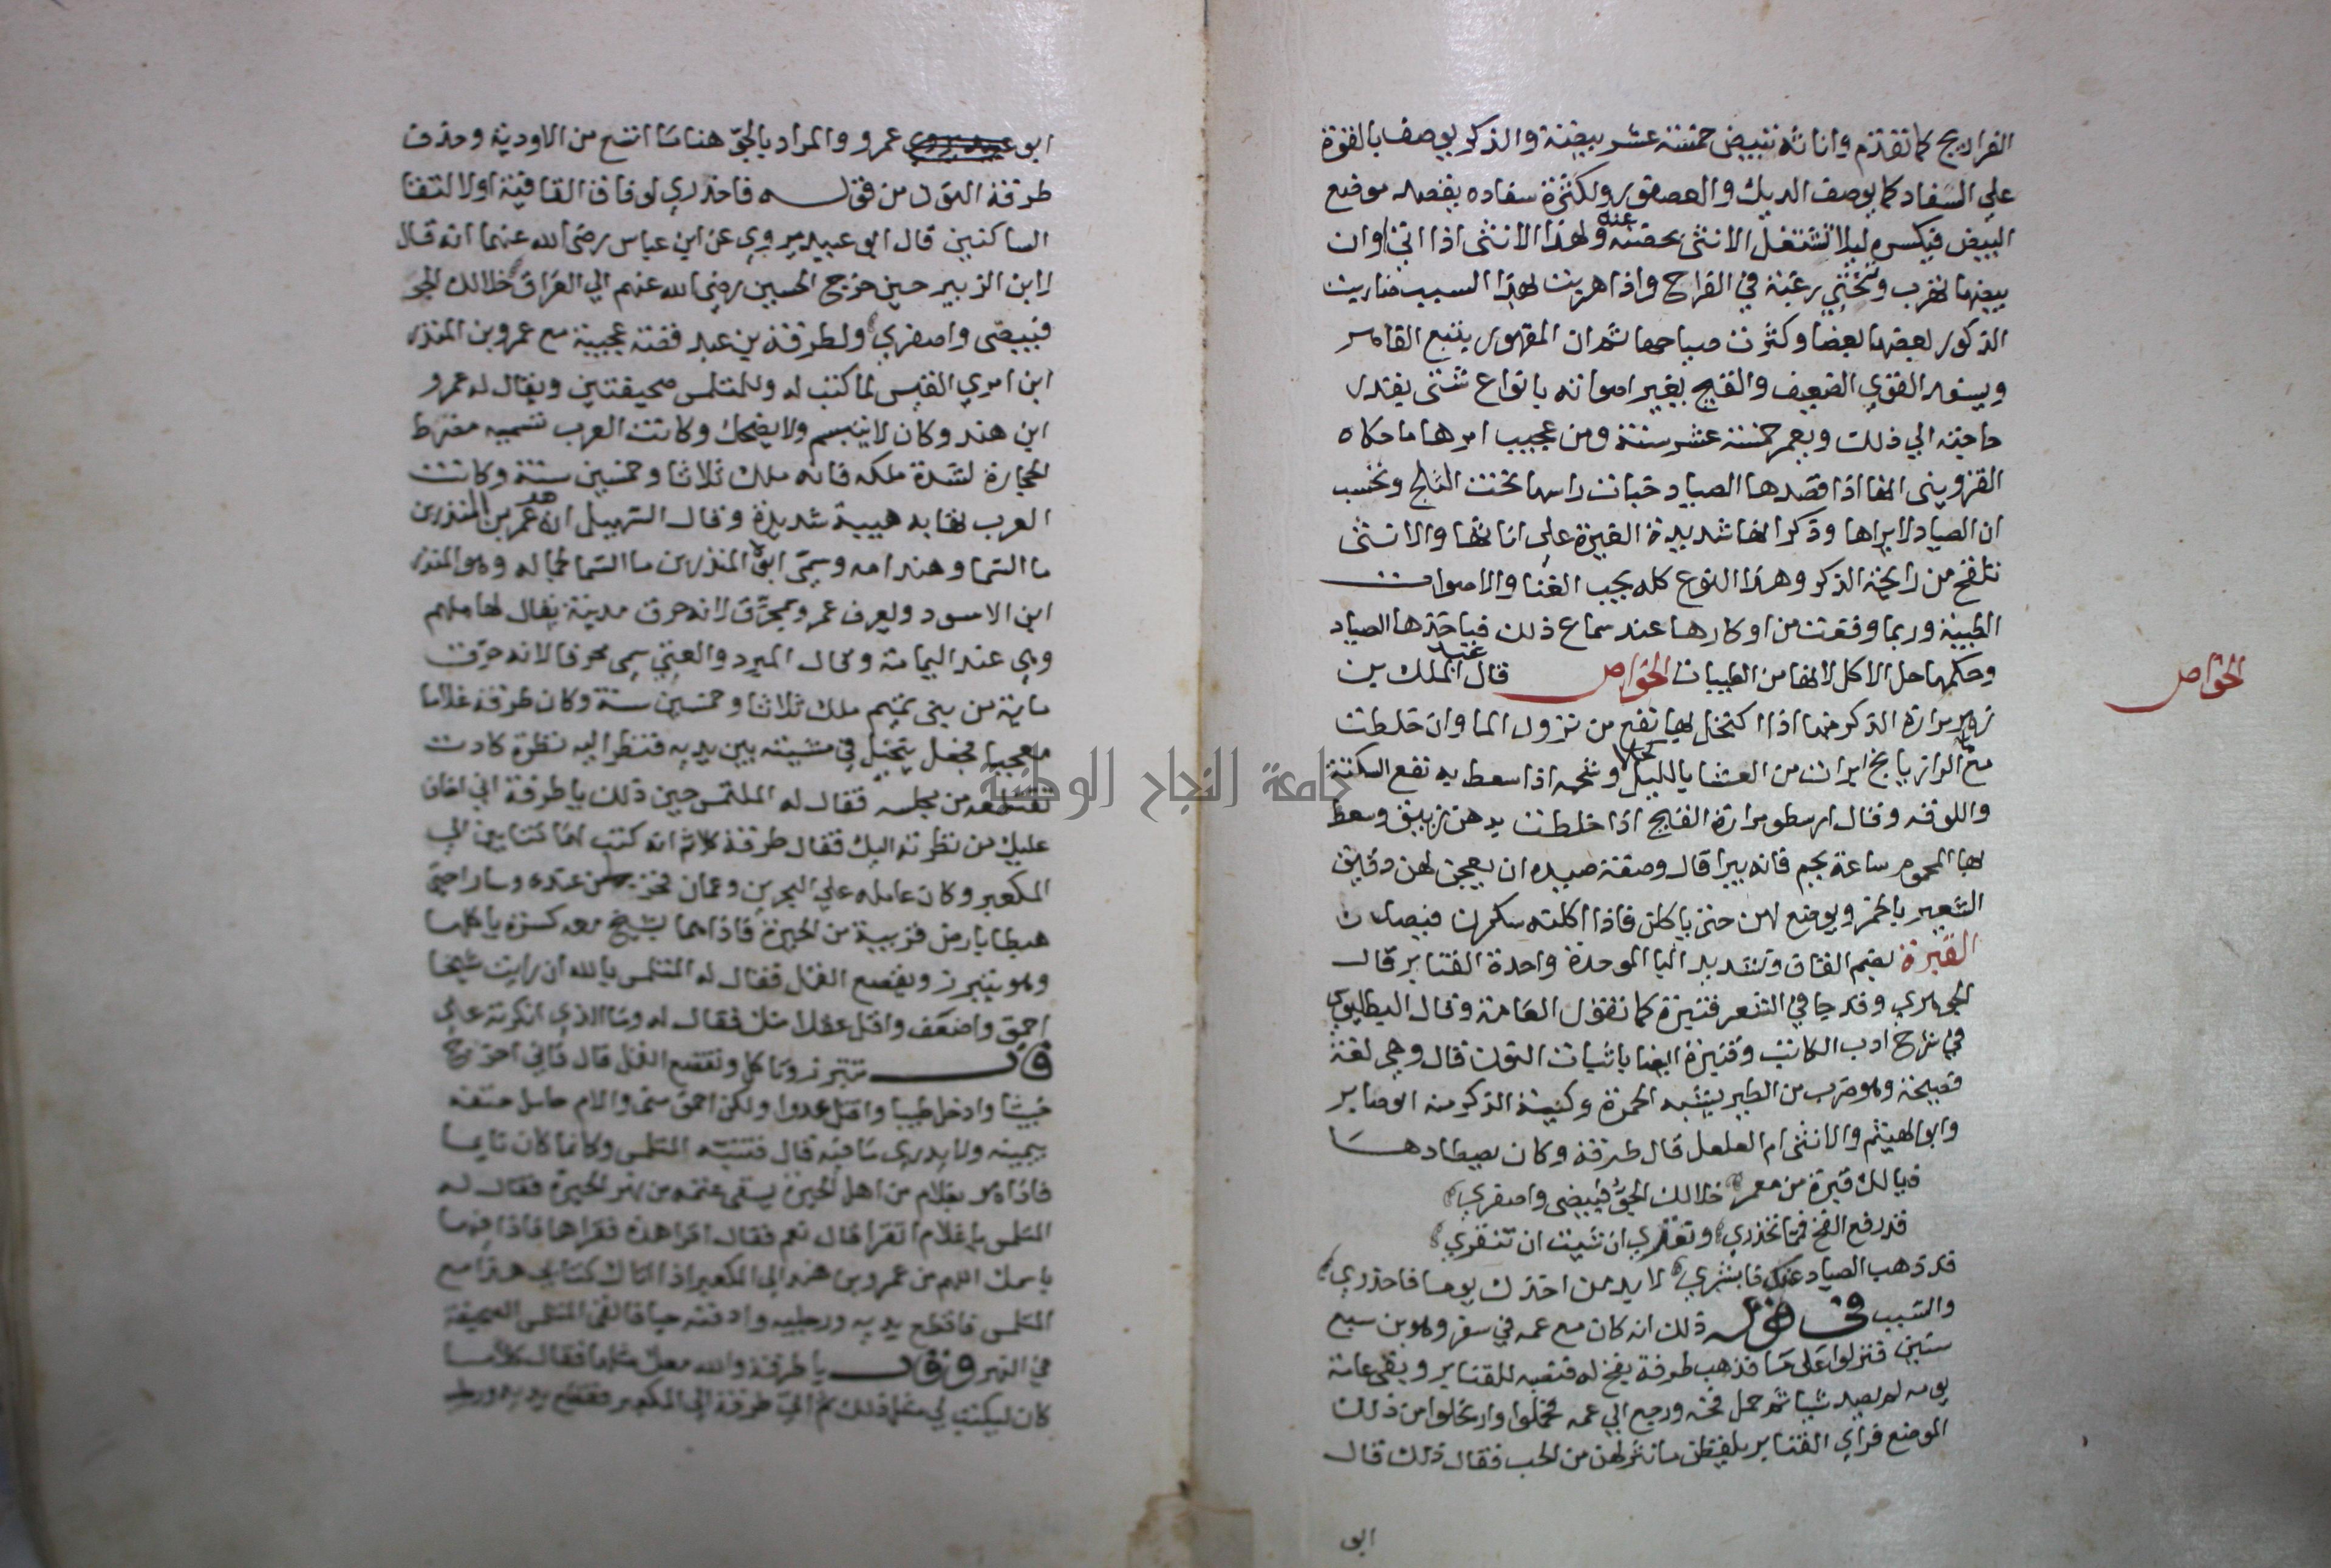 الفراريج كما تقدم وانا ثه تبيض خمسة عشر بيضة والذكر يوصف بالقوة
علي السفاد كما يوصف الديك والعصفور ولكثرة سفاده يقصد موضع
البيض فيكسره ليلا تشتغل الانثي بحضنه عنه ولهذا الانثي اذا اتي اوان
بيضها تهرب وتختبي رغبة في الفراخ واذا هربت لهذا السبب ضاربت
الذكور بعضها بعضا وكثرت صياحها ثم ان المقهور يتبع القاهر
ويسفد القوي الضعيف والقبج يغير اصواته بانواع شتي بقدر
حاجته الي ذلك ويعمر خمسة عشر سنة ومن عجيب امرها ما حكاه
القزويني انها اذا قصدها الصياد خبات راسها تحت الثلج وتحسب
ان الصياد لا يراها وذكرانها شديدة الغيرة علي اناثها والانثي
تلقح من رايحة الذكر وهذا النوع كله يحب الغنا والاصوات
الطيبة وربما وقعت من اوكارها عند سماع ذلك فياخذها الصياد
وحكمها حل الاكل لانها من الطيبات الخواص قال عبد الملك بن
الخواص
زهر مرارة الذكر منها اذا اكتحل بها تنفع من نزول الما وان خلطت
مع ما الرازيانج ابرات من العشا بالليل كحلا وشحمه اذا سعط به نفع السكتة
واللوقه وقال ارسطو مرارة القبج اذا خلطت بدهن زيبق وسعط
بها المحموم ساعة يحم فانه يبرا قال وصفة صيده ان يعجن لهن دقيق
الشعير بالخمر ويوضع لهن حتي ياكلن فاذا اكلته سكرن فيصادن
القبرة بضم القاف وتشديد البا الموحدة واحدة القنابر قال
الجوهري وقد جا في الشعر قنبرة كما تقول العامة وقال البطليوسي
في شرح ادب الكاتب وقنبرة ايضا باثبات النون قال وهي لغة
فصيحة وهو ضرب من الطير يشبه الحمرة وكنية الذكر منه ابو صابر
وابو الهيثم والانثي ام العلعل قال طرفة وكان يصطادها
فيالك قبرة من معمر خلالك الجو فبيضي واصفري
قد رفع الفخ فما تحذري ونقري ان شيت ان تنقري
قد ذهب الصياد عنك فابشري لا بد من اخذك يوما فاحذري
والسبب في قوله ذلك انه كان مع عمه في سفر وهو بن سبع
سنين فنزلوا علي ما فذهب طرفة بفخ له فنصبه للقنابر وبقي عامة
يومه لم يصد شيا ثم حمل فخه ورجع الي عمه فحملوا وارتحلوا من ذلك
الموضع فراي القنابر يلقطن ما نثر لهن من الحب فقال ذلك قال
ابو
ابو عمرو والمراد بالجو هنا ما اتسع من الاودية وحذف
طرفة النون من قوله فاحذري لوفاق القافية او لالتقا
الساكنين قال ابو عبيد يروي عن ابن عباس رضي الله عنهما انه قال
لابن الزبير حين خرج الحسين رضي الله عنهم الي العراق خلالك الجو
فبيضي واصفري ولطرفة بن عبد قصة عجيبة مع عمرو بن المنذر
ابن امري القيس لما كتب له وللمتلمس صحيفتين ويقال له عمرو
ابن هند وكان لا يتبسم ولا يضحك وكانت العرب تسميه مضرط
الحجارة لشدة ملكه فانه ملك ثلاثا وخمسين سنة وكانت
العرب تهابه هيبة شديدة وقال السهيلي انه عمرو بن المنذر بن
ما السما وهند امه وسمي ابوه المنذر بن ما السما لجماله وهو المنذر
ابن الاسود ويعرف عمرو بمحرق لانه حرق مدينة يقال لها ملهم
وهي عند اليمامة وقال المبرد والعتبي سمي محرقا لانه حرق
ماية من بني تميم ملك ثلاثا وخمسين سنة وكان طرفة غلاما
معجبا فجعل يتخيل في مشيته بين يديه فنظر اليه نظرة كادت
تقتلعه من مجلسه فقال له الملتمس حين ذلك يا طرفة اني اخاف
عليك من نظرته اليك فقال طرفة كلا ثم انه كتب لهما كتابين الي
المكعبر وكان عامله علي البحرين وعمان فخرجا من عنده وسارا حتي
هبطا بارض قريبة من الحيرة فاذا هما بشيخ معه كسرة ياكلها
وهو يتبرز ويقصع القمل فقال له المتلمس بالله ان رايت شيخا
احمق واضعف واقل عقلا منك فقال له وما الذي انكرته علي
قال تتبرز وتاكل وتقصع القمل قال فاني اخرج
خبيثا وادخل طيبا واقتل عدوا ولكن احمق مني والام حامل حتفه
بيمينه ولا يدري ما فيه قال فتنبه المتلمس وكانما كان نايما
فاذا هو بغلام من اهل الحيرة يسقي غنمه من نهر الحيرة فقال له
المتلمس يا غلام اتقرا قال نعم فقال اقرا هذه فقراها فاذا فيها
باسمك اللهم من عمرو بن هند الي المكعبر اذا اتاك كتابي هذا مع
المتلمس فاقطع يديه ورجليه وادفنه حيا فالقي المتلمس الصحيفة
في النهر وقال يا طرفة والله معك مثلها فقال كلا ما
كان ليكتب لي مثل ذلك ثم اتي طرفة الي المكعبر فقطع يديه ورجليه
جامعة النجاح الوطنية